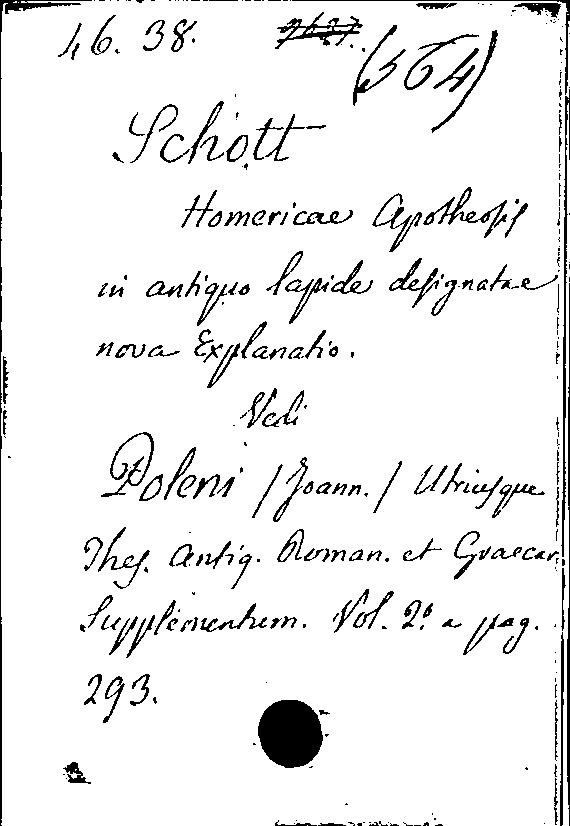 46. 38. (564)
Schott
Homericae Apotheosis
in antiquo lapide designatae
nova Explanatio.
Vedi
Poleni /Joann./ Utriusque
Thes. Antiq. Roman. et Graecar.
Supplementum. Vol. 2.º a pag.
293.